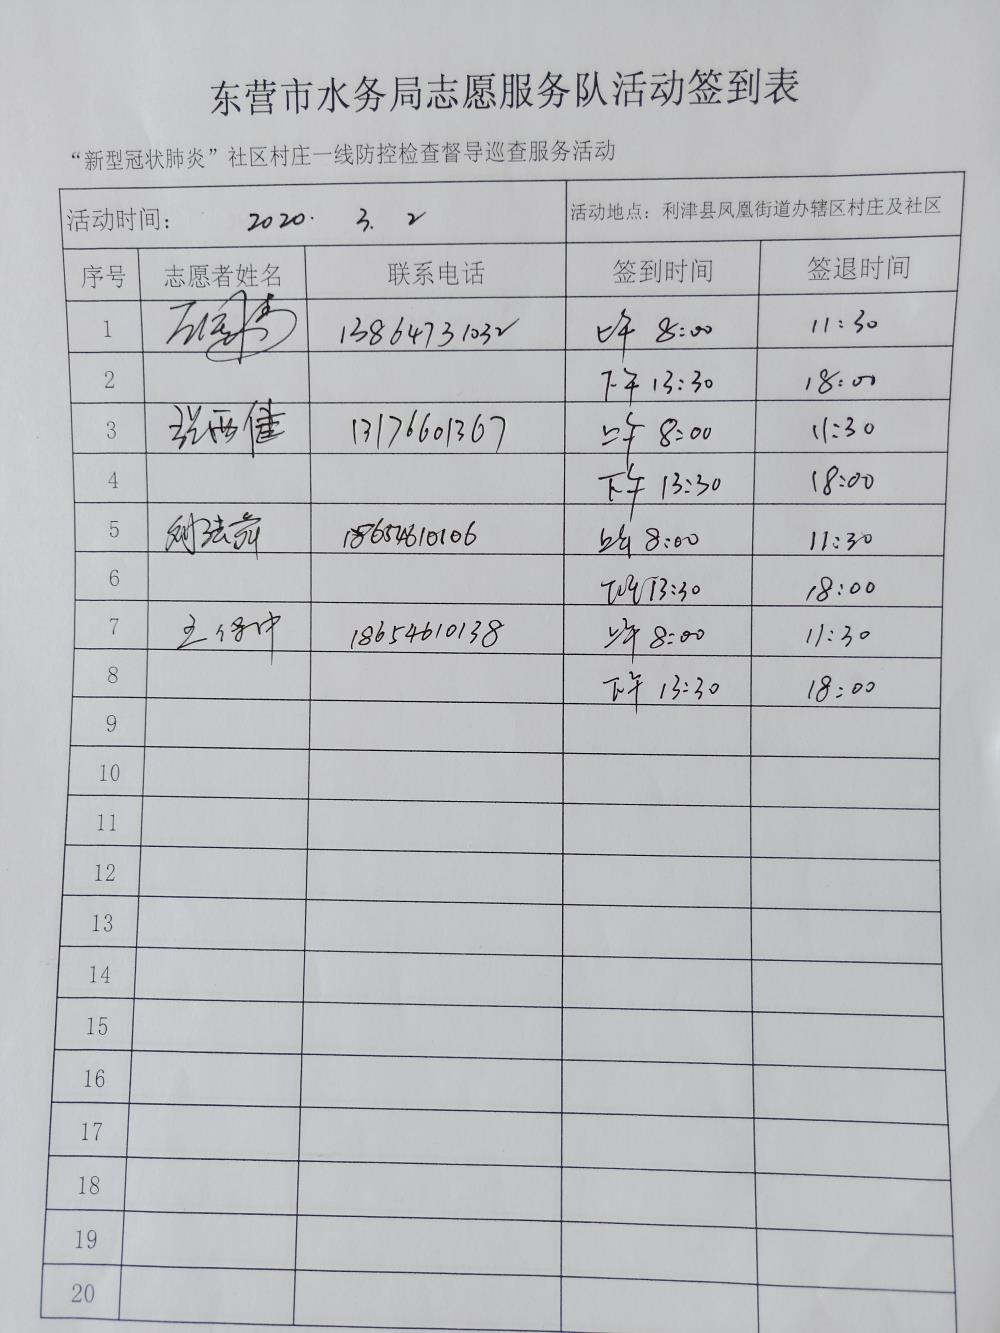 东营市水务局志愿服务队活动签到表
“新型冠状肺炎”社区村庄一线防控检查督导巡查服务活动
活动时间: 2020. 3. 2 活动地点: 利津县凤凰街道办辖区村庄及社区
序号 志愿者姓名 联系电话 签到时间 签退时间
1 13864731032 上午 8:00 11:30
2 下午 13:30 18:00
3 张西健 13176601367 上午 8:00 11:30
4 下午 13:30 18:00
5 18654610106 上午 8:00 11:30
6 下午 13:30 18:00
7 王 18654610138 上午 8:00 11:30
8 下午 13:30 18:00
9
10
11
12
13
14
15
16
17
18
19
20